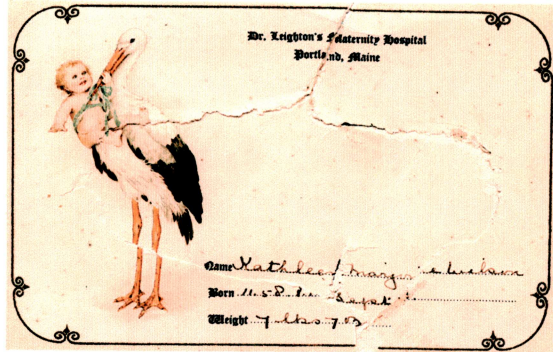 Dr. Leighton's Maternity Hospital
Portland, Maine
Name Kathleen
Born 11.58 Sept
Weight 7 lbs 7